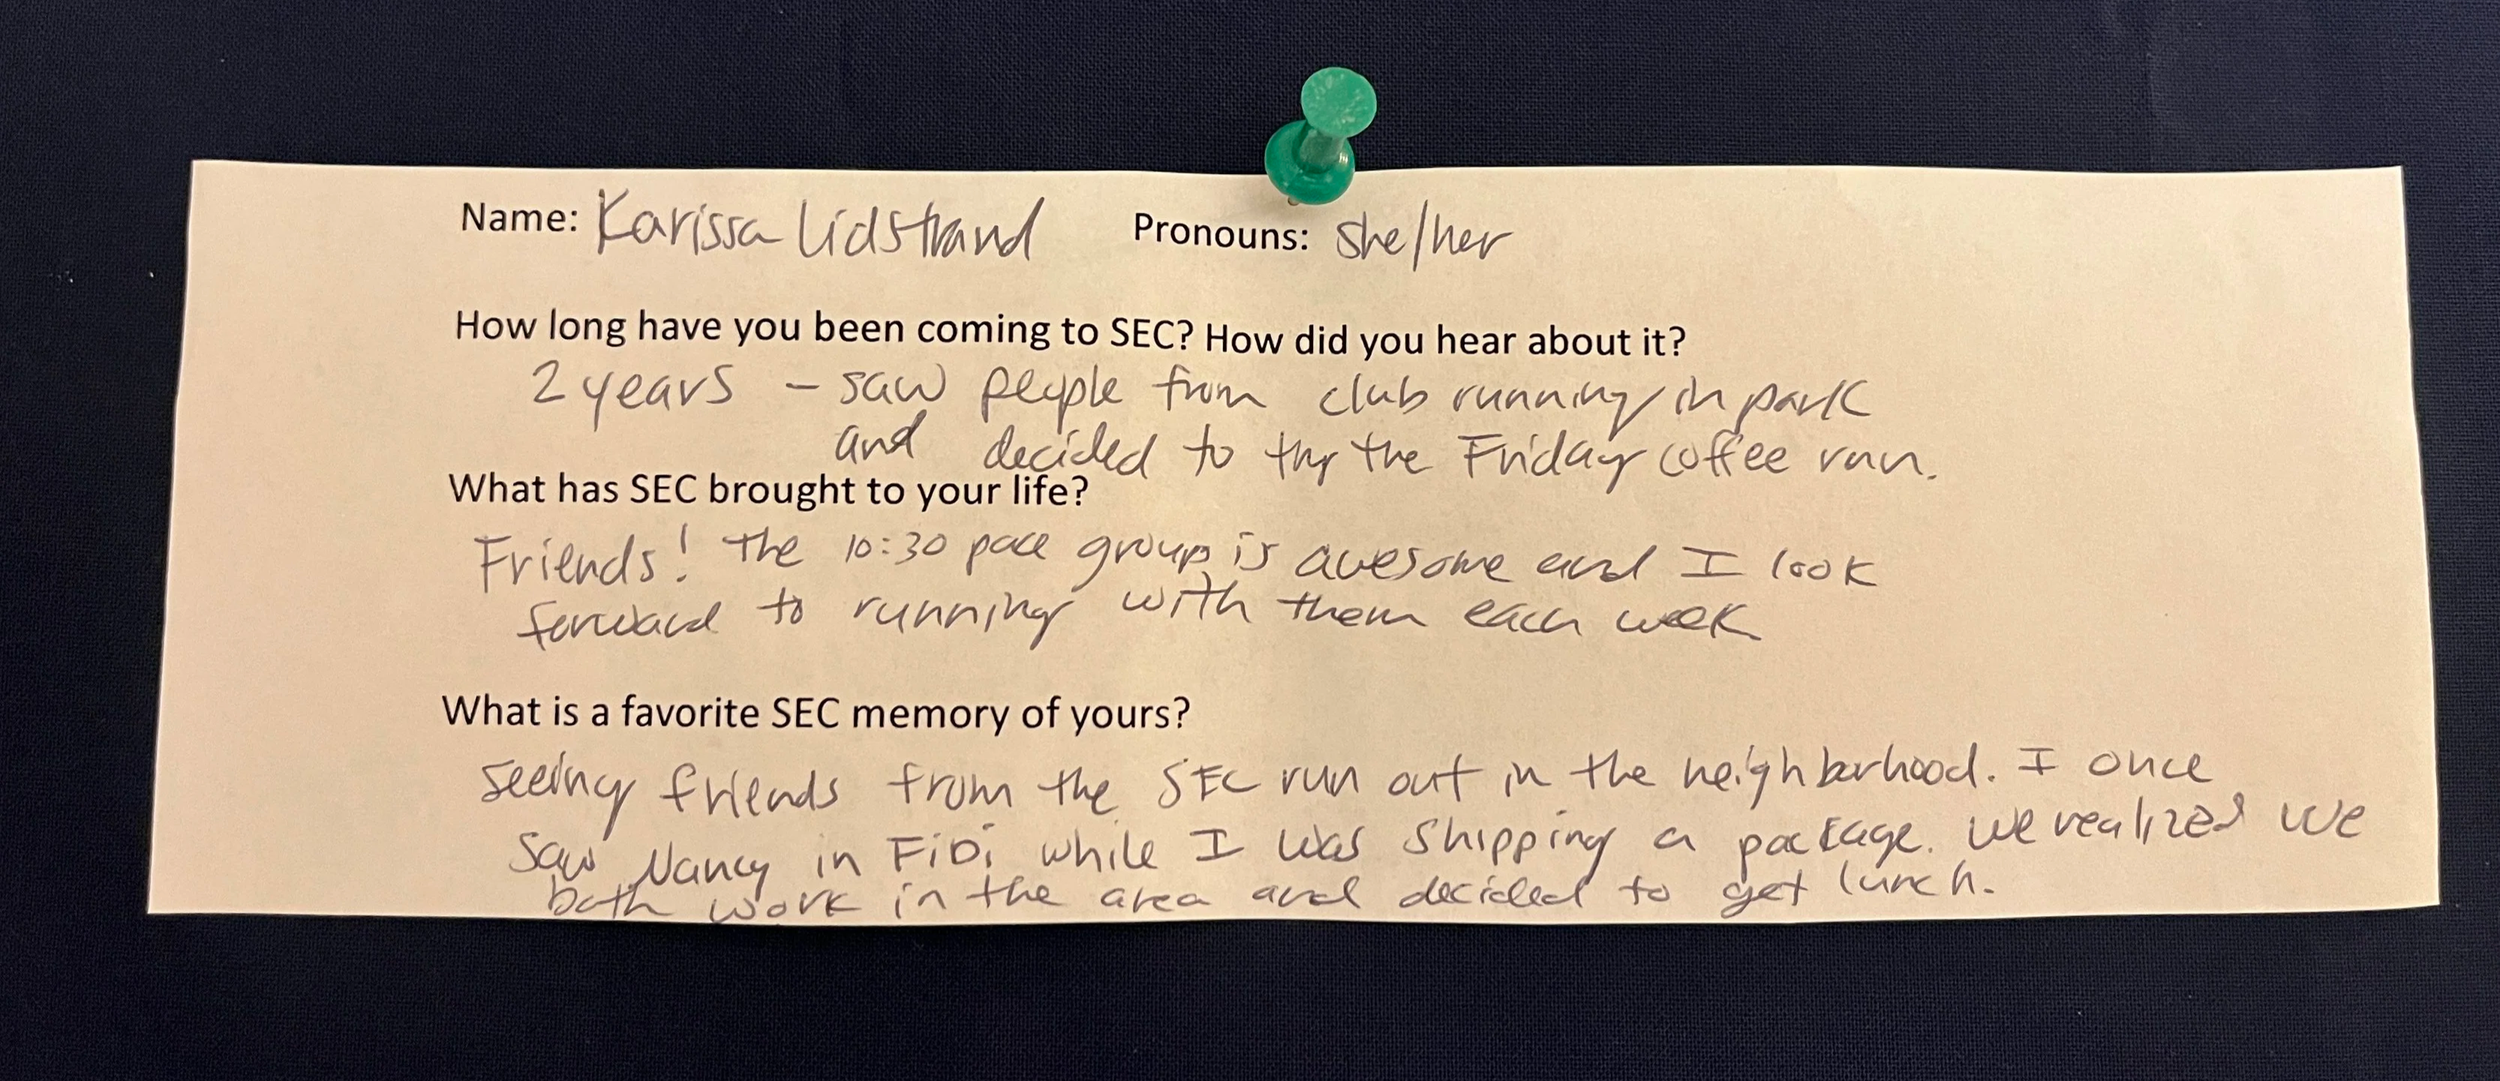 Name: Karissa Lidstrand Pronouns: she/her
How long have you been coming to SEC? How did you hear about it?
2 years - saw people from club running in park
and decided to try the Friday coffee run.
What has SEC brought to your life?
Friends! The 10:30 pace group is awesome and I look
forward to running with them each week
What is a favorite SEC memory of yours?
Seeing friends from the SEC run out in the neighborhood. I once
saw Nancy in FiDi while I was shipping a package. We realized we
both work in the area and decided to get lunch.